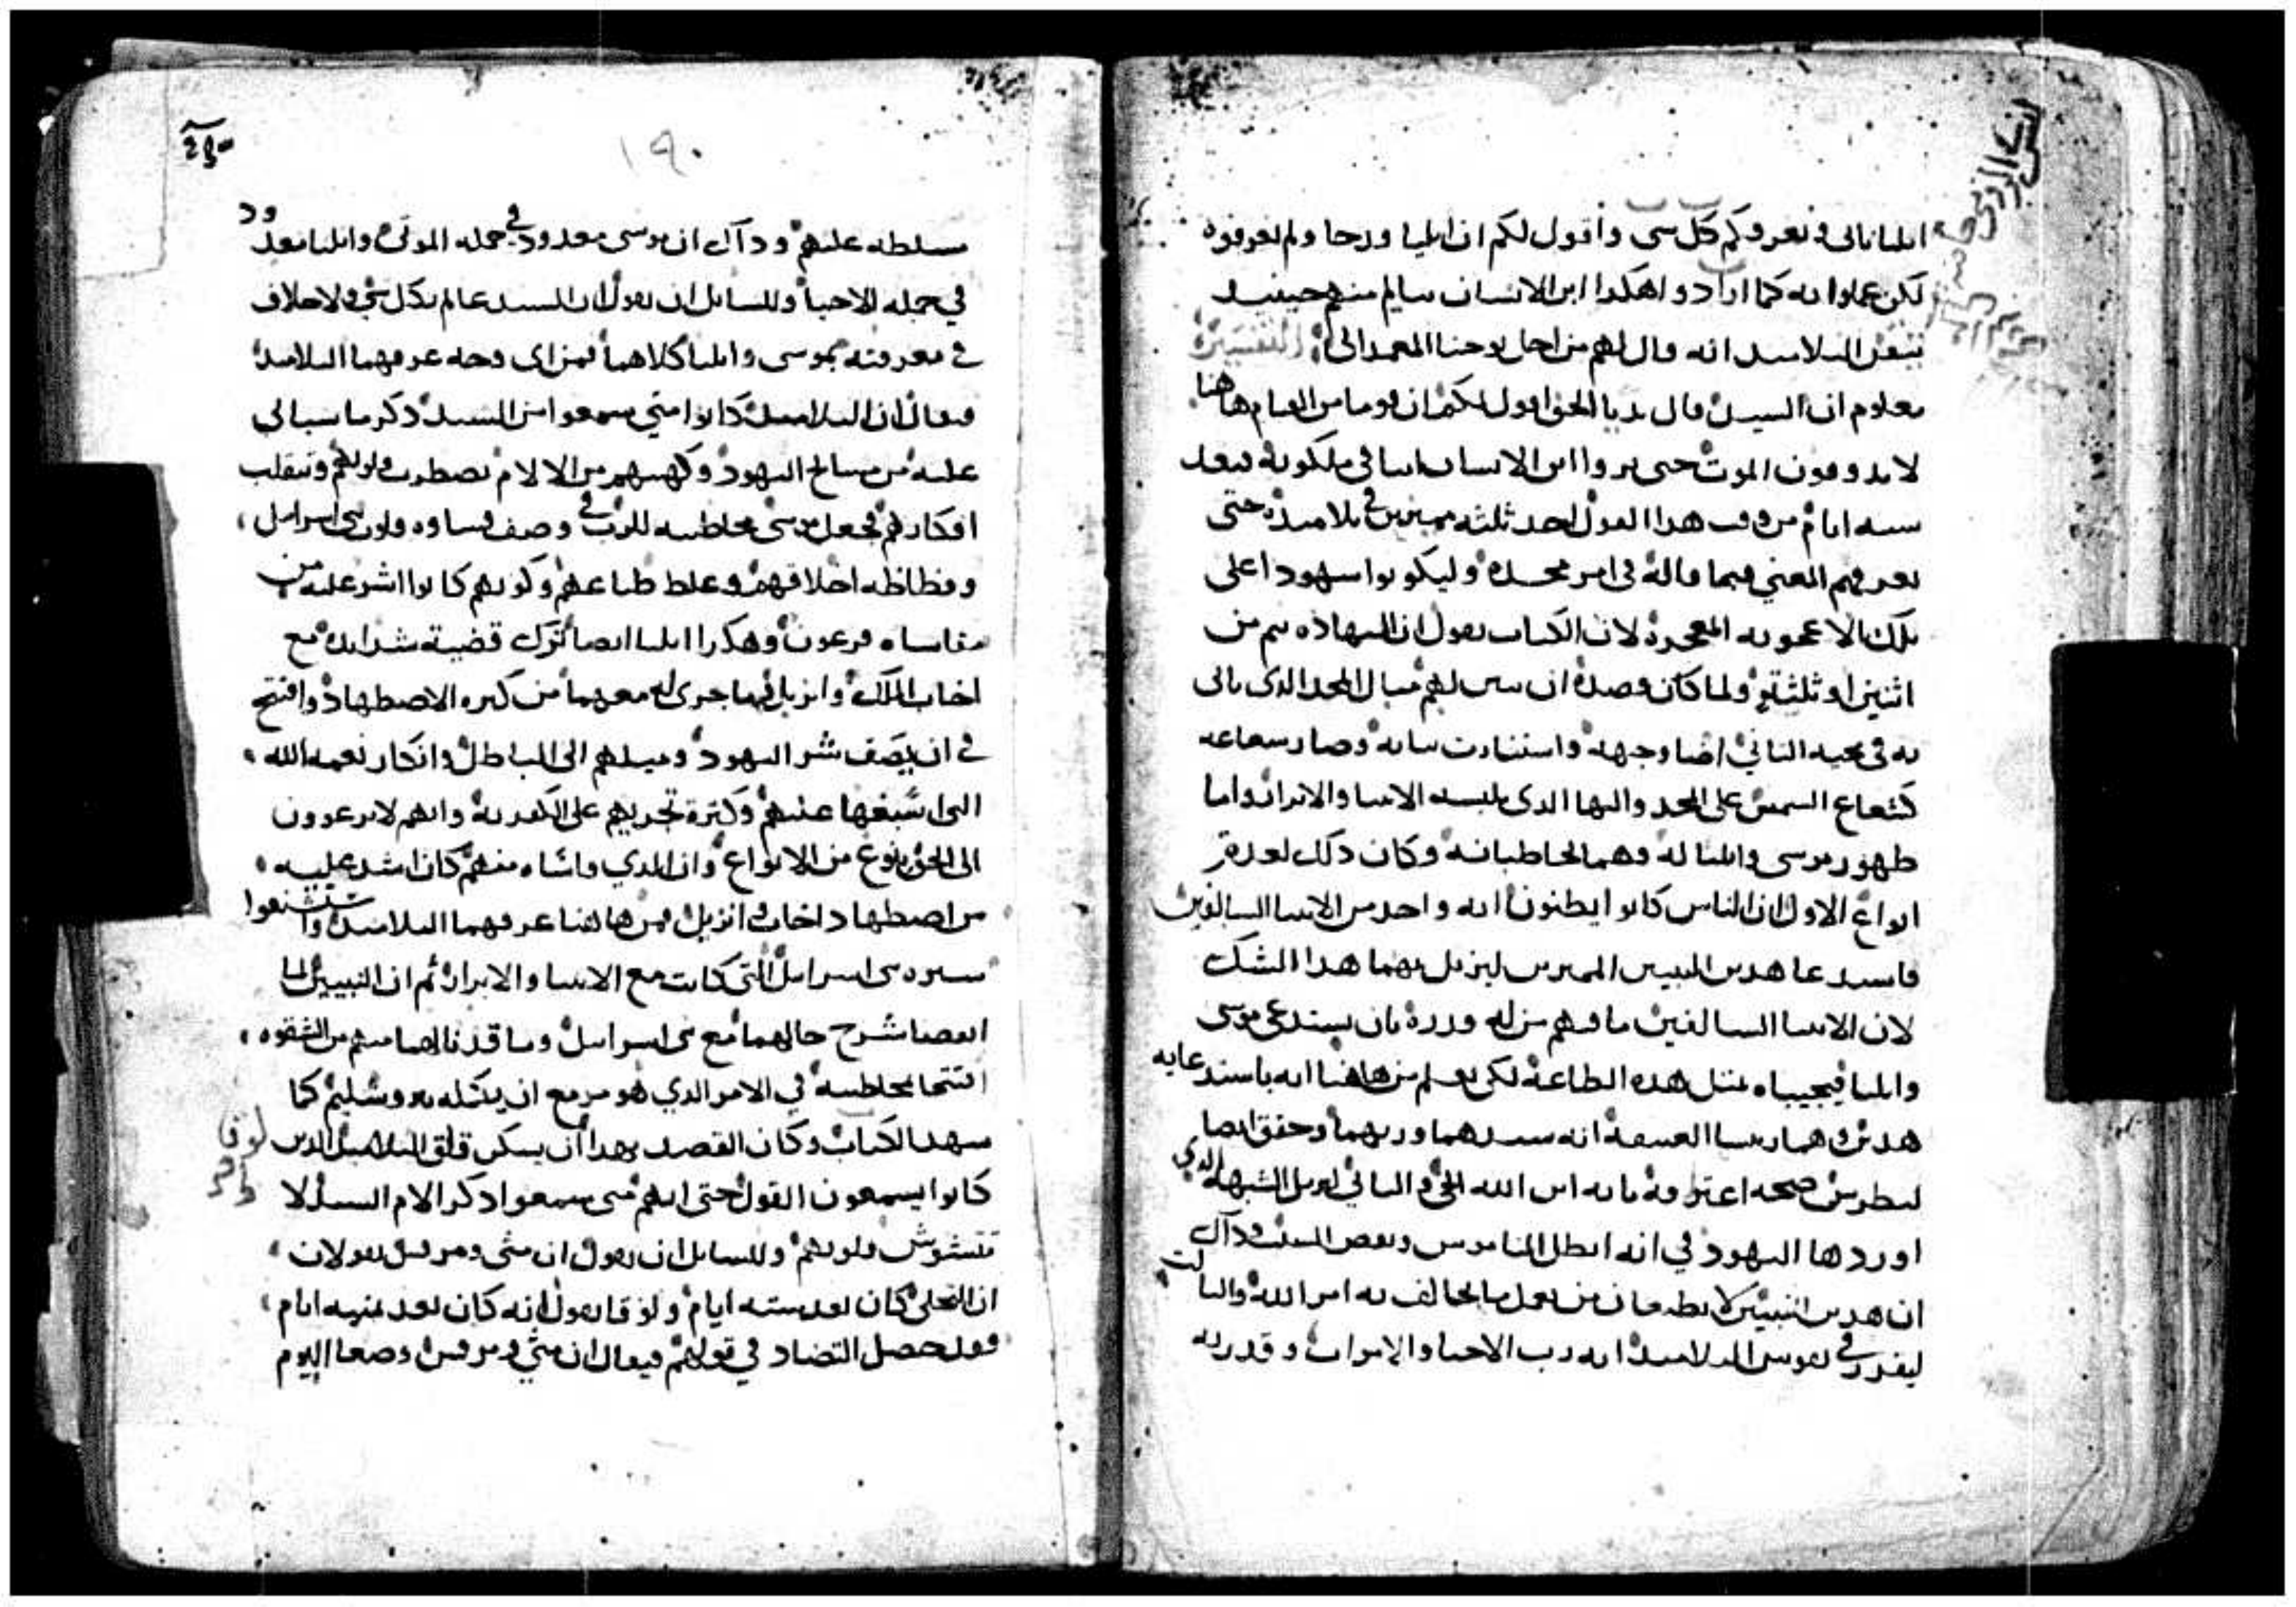 ايليا ياتى فيعرفكم كل شى وأقول لكم ان ايليا قد جا ولم يعرفوه
لكن عملوا به كما ارادوا هكذا ابن الانسان سيالم منهم حينيذ
تيقن التلاميذ انه قال لهم من اجل يوحنا المعمدانى التفسير
معلوم ان السيد قال بديا الحق اقول لكم ان قوما من القيام هاهنا
لا يذوقون الموت حتى يروا ابن الانسان اتيا فى ملكوته فبعد
سته ايام من وقت هذا القول اخذ ثلثه مميزين فى تلاميذه حتى
يعرفهم المعني فيما قاله فى امر مجده وليكونوا شهودا على
تلك الاعجوبه المعجزه لان الكتاب يقول ان الشهاده تتم من
اثنين او ثلثة ولما كان قصده ان يبين لهم مثال المجد الذى ياتى
به فى مجيه الثاني اضا وجهه واستنارت ثيابه وصار شعاعه
كشعاع الشمس على المجد والبها الذى يلبسه الانبيا والابرار واما
ظهور موسى وايليا له وهما يخاطبانه وكان ذلك لعدة
انواع الاول ان الناس كانوا يظنون انه واحد من الانبيا السالفين
فاستدعا هذين النبيين المميزين ليزيل بهما هذا الشك
لان الانبيا السالفين ما فيهم من له قدره بان يستدعى موسى
وايليا فيجيباه بمثل هذه الطاعة لكى يعلم من هاهنا انه باستدعايه
هذين وهما ريسا العتيقة انه سيدهما وربهما وحقق ايضا
لبطرس صحه اعترافه بانه ابن الله الحى والثاني ليزيل الشبهه الذي
اوردها اليهود في انه ابطل الناموس ونقض السبت وذاك
ان هذين النبيين لا يطيعان من يعمل ما يخالف به امر الله والثالث
ليقرر في نفوس التلاميذ انه رب الاحيا والاموات وقدرته
١٩٠
متسلطه عليهم وذاك ان موسى معدود في جمله الموتى وايليا معدود
في جمله الاحيا وللسايل ان يقول ان السيد عالم بكل شى ولا خلاف
في معرفته بموسى وايليا كلاهما فمن اى وجه عرفهما التلاميذ
فيقال ان التلاميذ كانوا متي سمعوا من السيد ذكر ما سياتى
عليه من مشايخ اليهود وكهنتهم من الالام تضطرب قلوبهم وتنقلب
افكارهم فجعل موسى مخاطبته للرب فى وصف قساوه قلوب بنى اسرايل
وفظاظه اخلاقهم وغلظ طباعهم وكونهم كانوا اشر عليه من
مقاساه فرعون وهكذا ايليا ايضا ترك قضية شدايده مع
اخاب الملك وايزبل وما جرى له معهما من كثره الاضطهاد وافتتح
في ان يصف شر اليهود وميلهم الى الباطل وانكار نعمه الله
التى اسبغها عليهم وكثرة تجريهم على الكفر به وانهم لا يرعوون
الى الحق بنوع من الانواع وان الذي قاساه منهم كان اشد عليه
من اضطهاد اخاب وايزبل فمن هاهنا عرفهما التلاميذ واستشنعوا
سيره بنى اسرايل التى كانت مع الانبيا والابرار ثم ان النبيين لما
افتتحا بمخاطبته في الامر الذي هو مزمع ان يكمله بيروشليم كما
شهد الكتاب وكان القصد بهذا ان يسكن قلق التلاميذ الذين
لوقا
كانوا يسمعون القول حتى انهم متى سمعوا ذكر الام السيد لا
تتشوش قلوبهم وللسايل ان يقول ان متى ومرقس يقولان
ان التجلى كان بعد سته ايام ولوقا يقول انه كان بعد ثمنيه ايام
فقد حصل التضاد في قولهم فيقال ان متي ومرقس وضعا اليوم